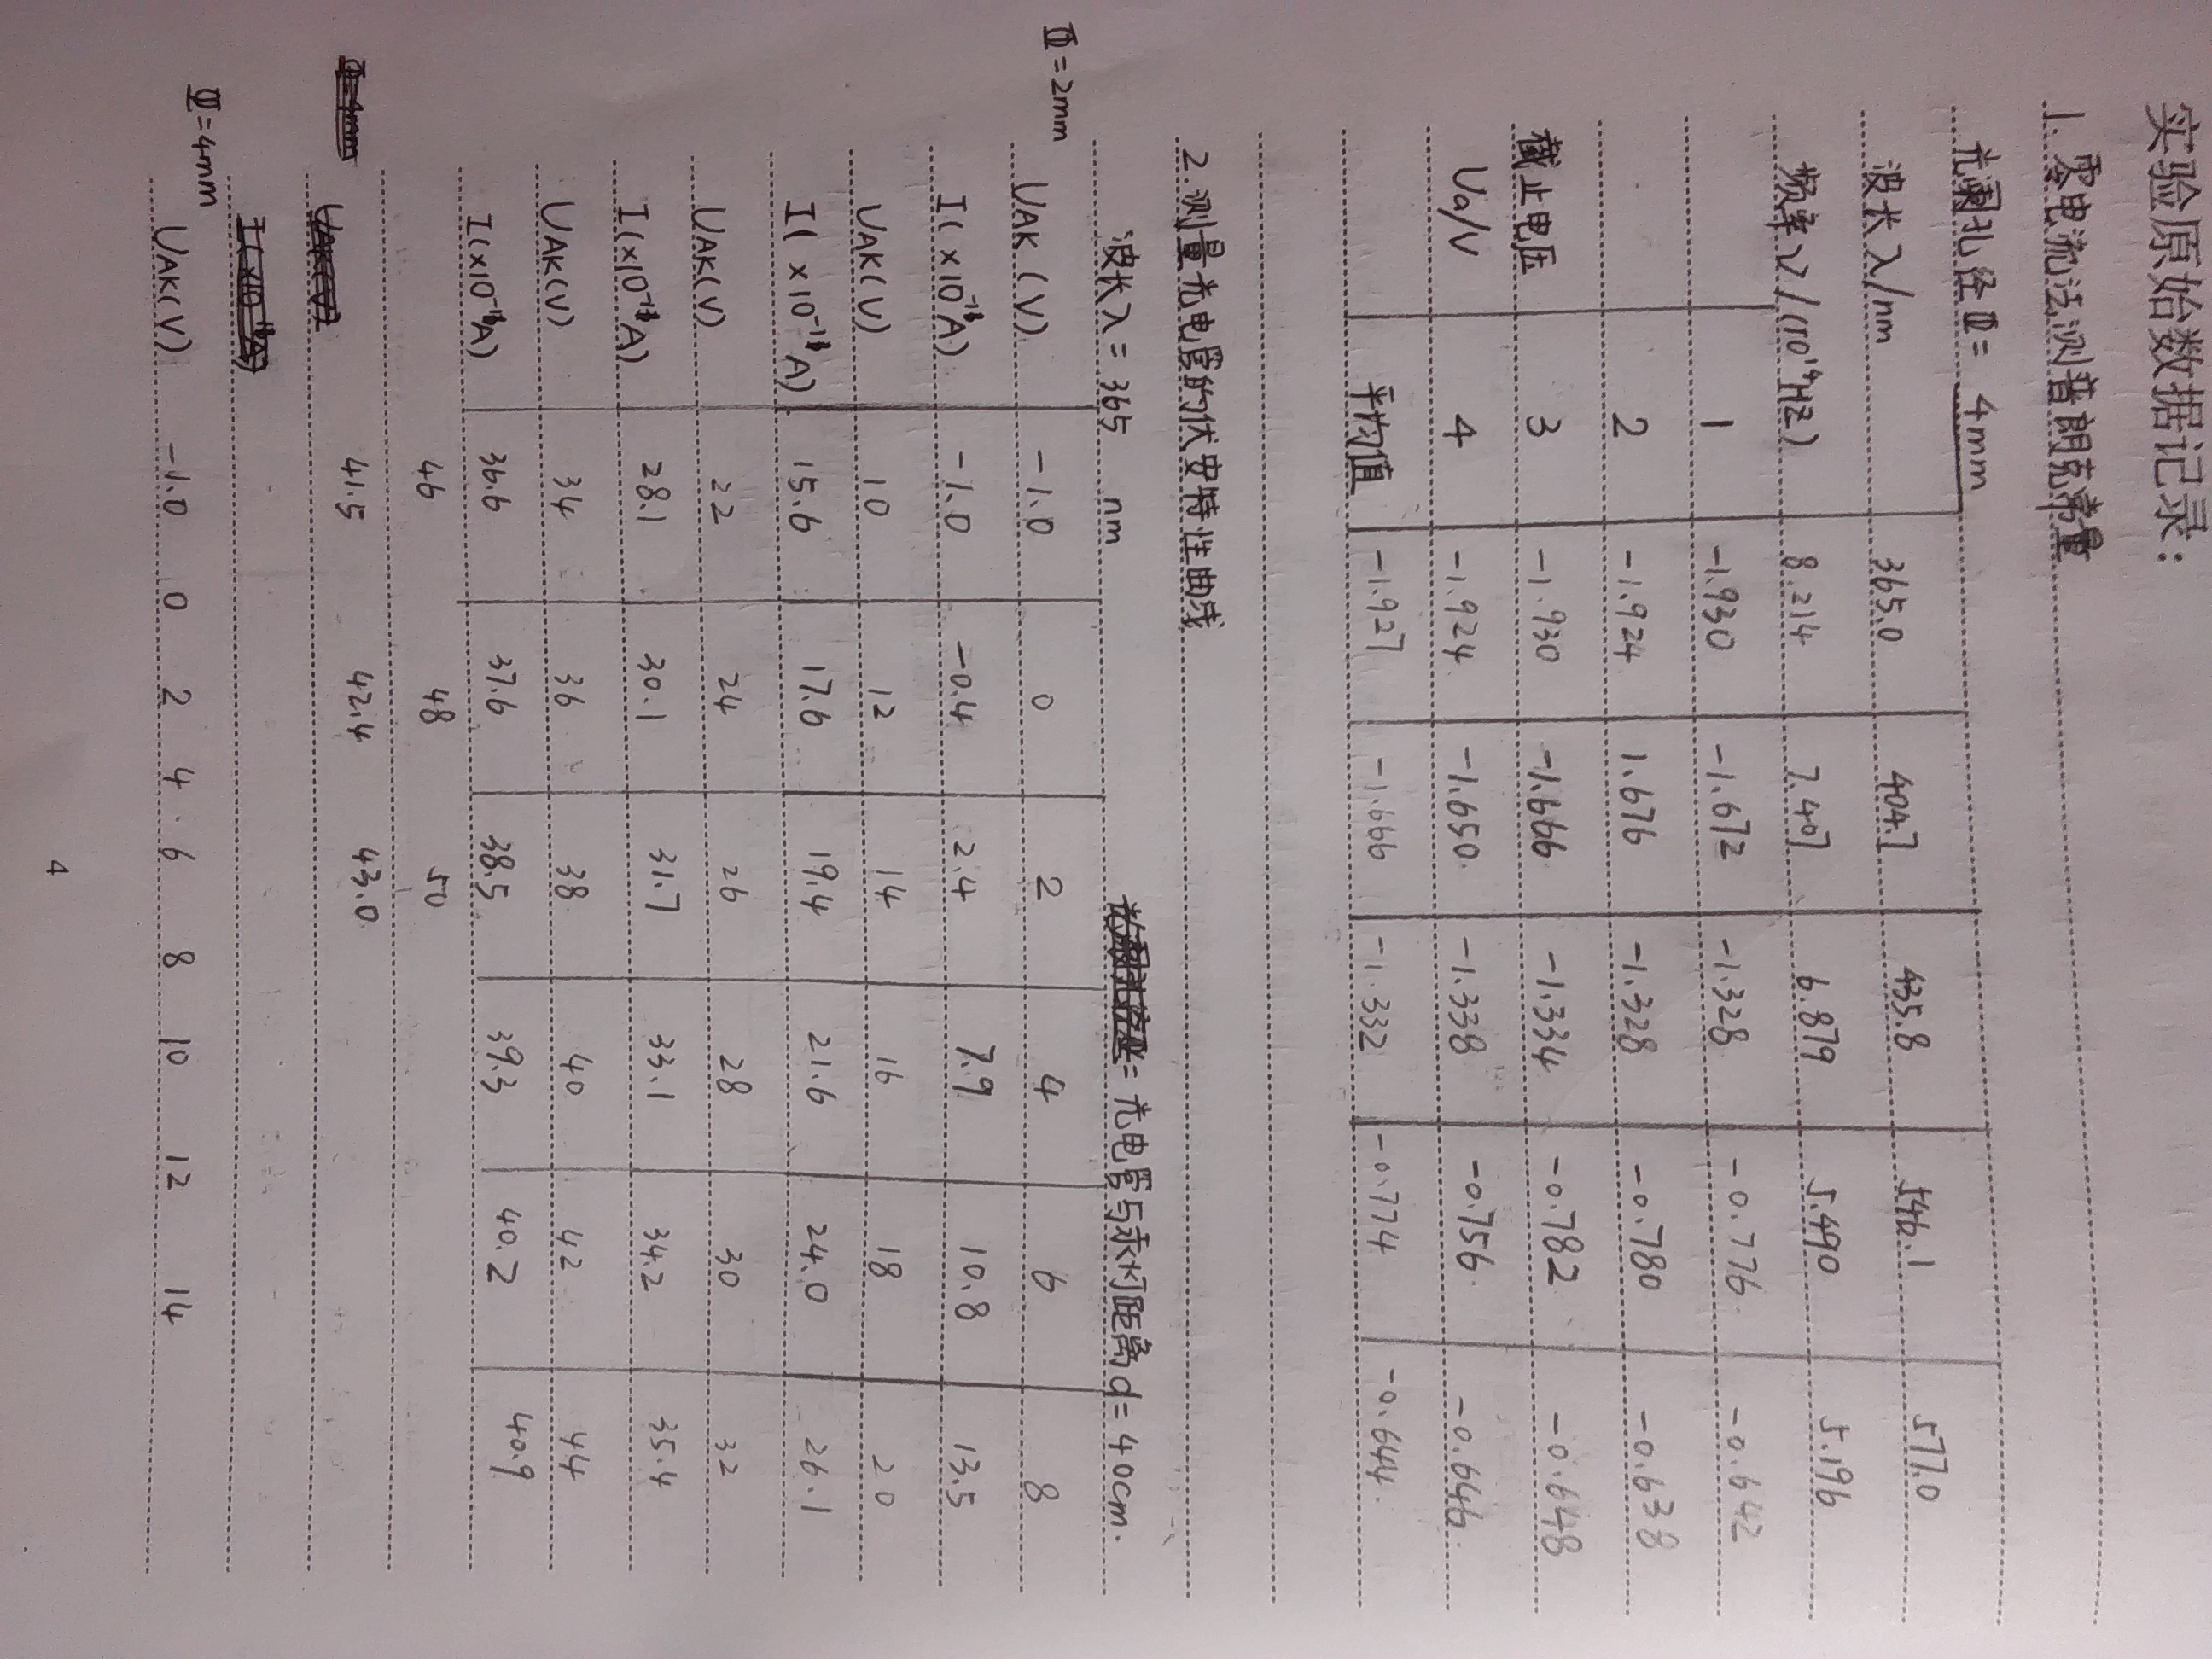 实验原始数据记录:
1. 零电流法测普朗克常量
光阑孔径Φ= 4mm
波长λ/nm 365.0 404.7 435.8 546.1 577.0
频率ν/(10¹⁴HZ) 8.214 7.407 6.879 5.490 5.196
1 -1.930 -1.672 -1.328 -0.776 -0.642
2 -1.924 1.676 -1.328 -0.780 -0.638
截止电压 3 -1.930 -1.666 -1.334 -0.782 -0.648
U₀/V 4 -1.924 -1.650 -1.338 -0.756 -0.646
平均值 -1.927 -1.666 -1.332 -0.774 -0.644
2.测量光电管的伏安特性曲线
波长λ= 365 nm = 光电管与汞灯距离d=40cm.
Φ=2mm
UAK(V) -1.0 0 2 4 6 8
I(×10⁻¹⁰A) -1.0 -0.4 2.4 7.9 10.8 13.5
UAK(V) 10 12 14 16 18 20
I(×10⁻¹⁰A) 15.6 17.6 19.4 21.6 24.0 26.1
UAK(V) 22 24 26 28 30 32
I(×10⁻¹⁰A) 28.1 30.1 31.7 33.1 34.2 35.4
UAK(V) 34 36 38 40 42 44
I(×10⁻¹⁰A) 36.6 37.6 38.5 39.3 40.2 40.9
46 48 50
41.5 42.4 43.0
Φ=4mm
UAK(V) -1.0 0 2 4 6 8 10 12 14
4